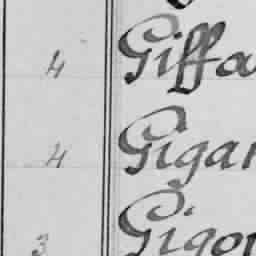 4 Giffa
4 Gigan
3 Gigou